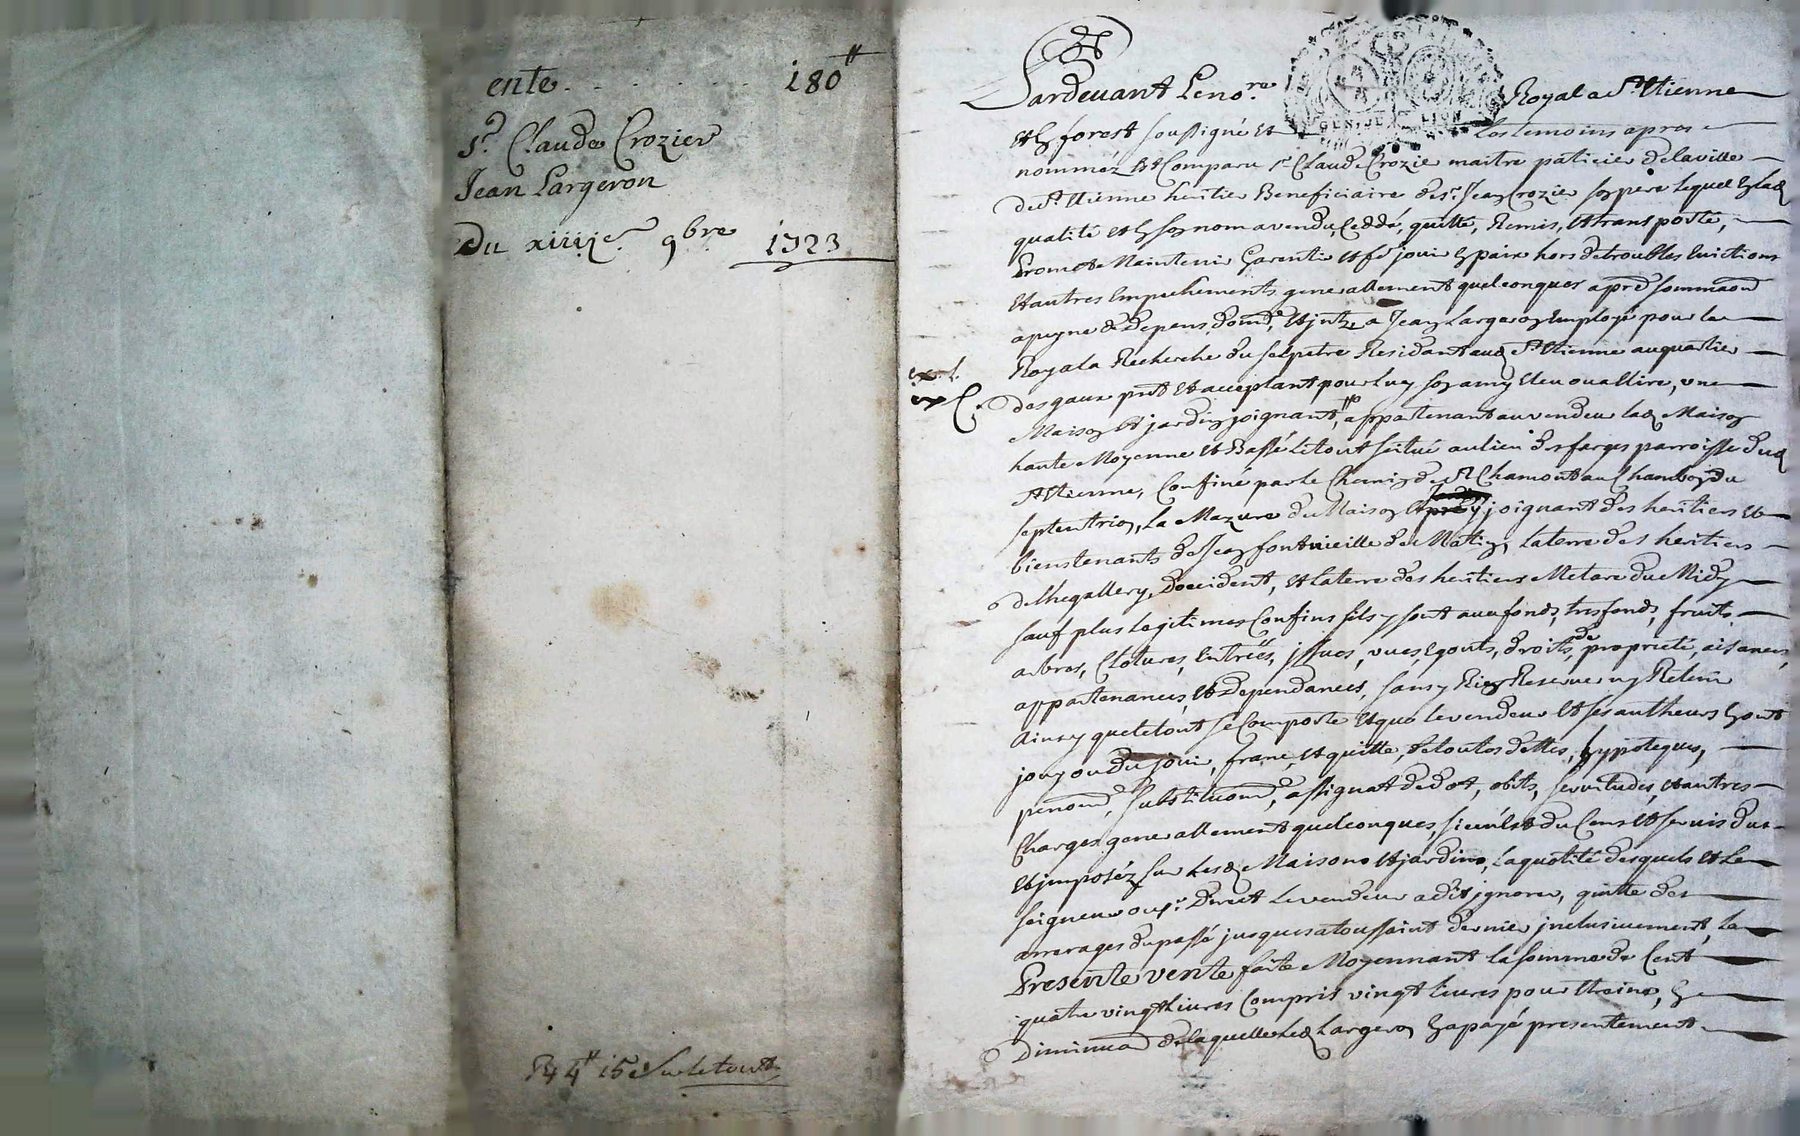 ente. . . . . . . . 180#
Sr. Claude Crozier
Jean Largeron
Du xiiiie. 9bre 1723
144# 15 s Sur le tout
Pardevant Le nore. Royal a St. Etienne
et forest soussigné et Les temoins apres
nommez Et Comparu sr. Claude Crozier maitre paticier de la ville
de st. Etienne heritier Beneficiaire de sr. Jean Crozier son pere lequel
qualité et son nom a vendu, Ceddé, quitté, Remis, et transporté,
Promet Maintenir Garentir et fe. jouir en paix hors de troubles Evictions
et autres Empechements generallement quelconques
a peyne de Depens, a Jean Largeron Employé pour la
Royala Recherche du salpetre Residant aud. St. Etienne au quartier
des gaux pnt et acceptant pour luy son amy Eleu ou a Elire, une
Maison et jardin joignant, appartenant au vendeur lad. Maison
haute Moyenne et Basse Le tout scitué au lieu des farges parroisse dud.
St. Etienne, Confiné par le Chemin de St. Chamont au Chambon du
septentrion, La Mazure du Maison joignant des heritiers et
bienstenants de Jean fontvieille de Matin, la terre des heritiers
Doccident, et la terre des heritiers Metare du Midy
sauf plus Legitimes Confins sils y sont avec fonds, tresfonds, fruits,
arbres, Clotures, Entrées, jssues, vues, Egouts, droits, de proprieté, aisances,
appartenances, et Dependances, sans y Rien Reserver ny Retenir
Ainsy que le tout se Comporte et que le vendeur et ses autheurs En ont
jouy ou du jouir, franc, et quitte, de toutes dettes, hypoteques,
assignat de dot, obits, servitudes, et autres
Charges generallement quelconques, du Cens et servis
et jmposéz sur lesd. Maisons et jardins, La quotité desquels et Le
seigneur Direct Le vendeur a dit jgnorer, quitte des
arrerages du passé jusques a toussaint dernier jnclusivement, La
Presente vente faite Moyennant la somme de Cent
quatre vingt Livres Compris vingt livres pour Etreine, En
Diminuaon de laquelle Led. Largeron En a payé presentement